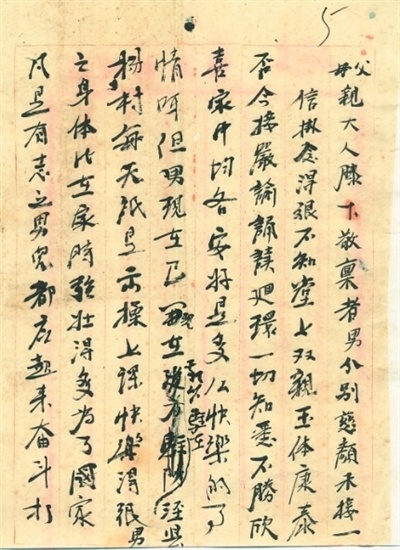 5
父母親大人膝下敬稟者男分別慈顏未接一
信掛念得狠不知堂上双親玉体康泰
否今接嚴諭誦讀廻環一切知悉不勝欣
喜家中均各安好是多么快樂的事
情呵但男現在已在涇县
楊村每天祇是操上課快樂得狠男
之身体比在家時強壯得多為了國家
凡是有志之男児都应起来奋斗打